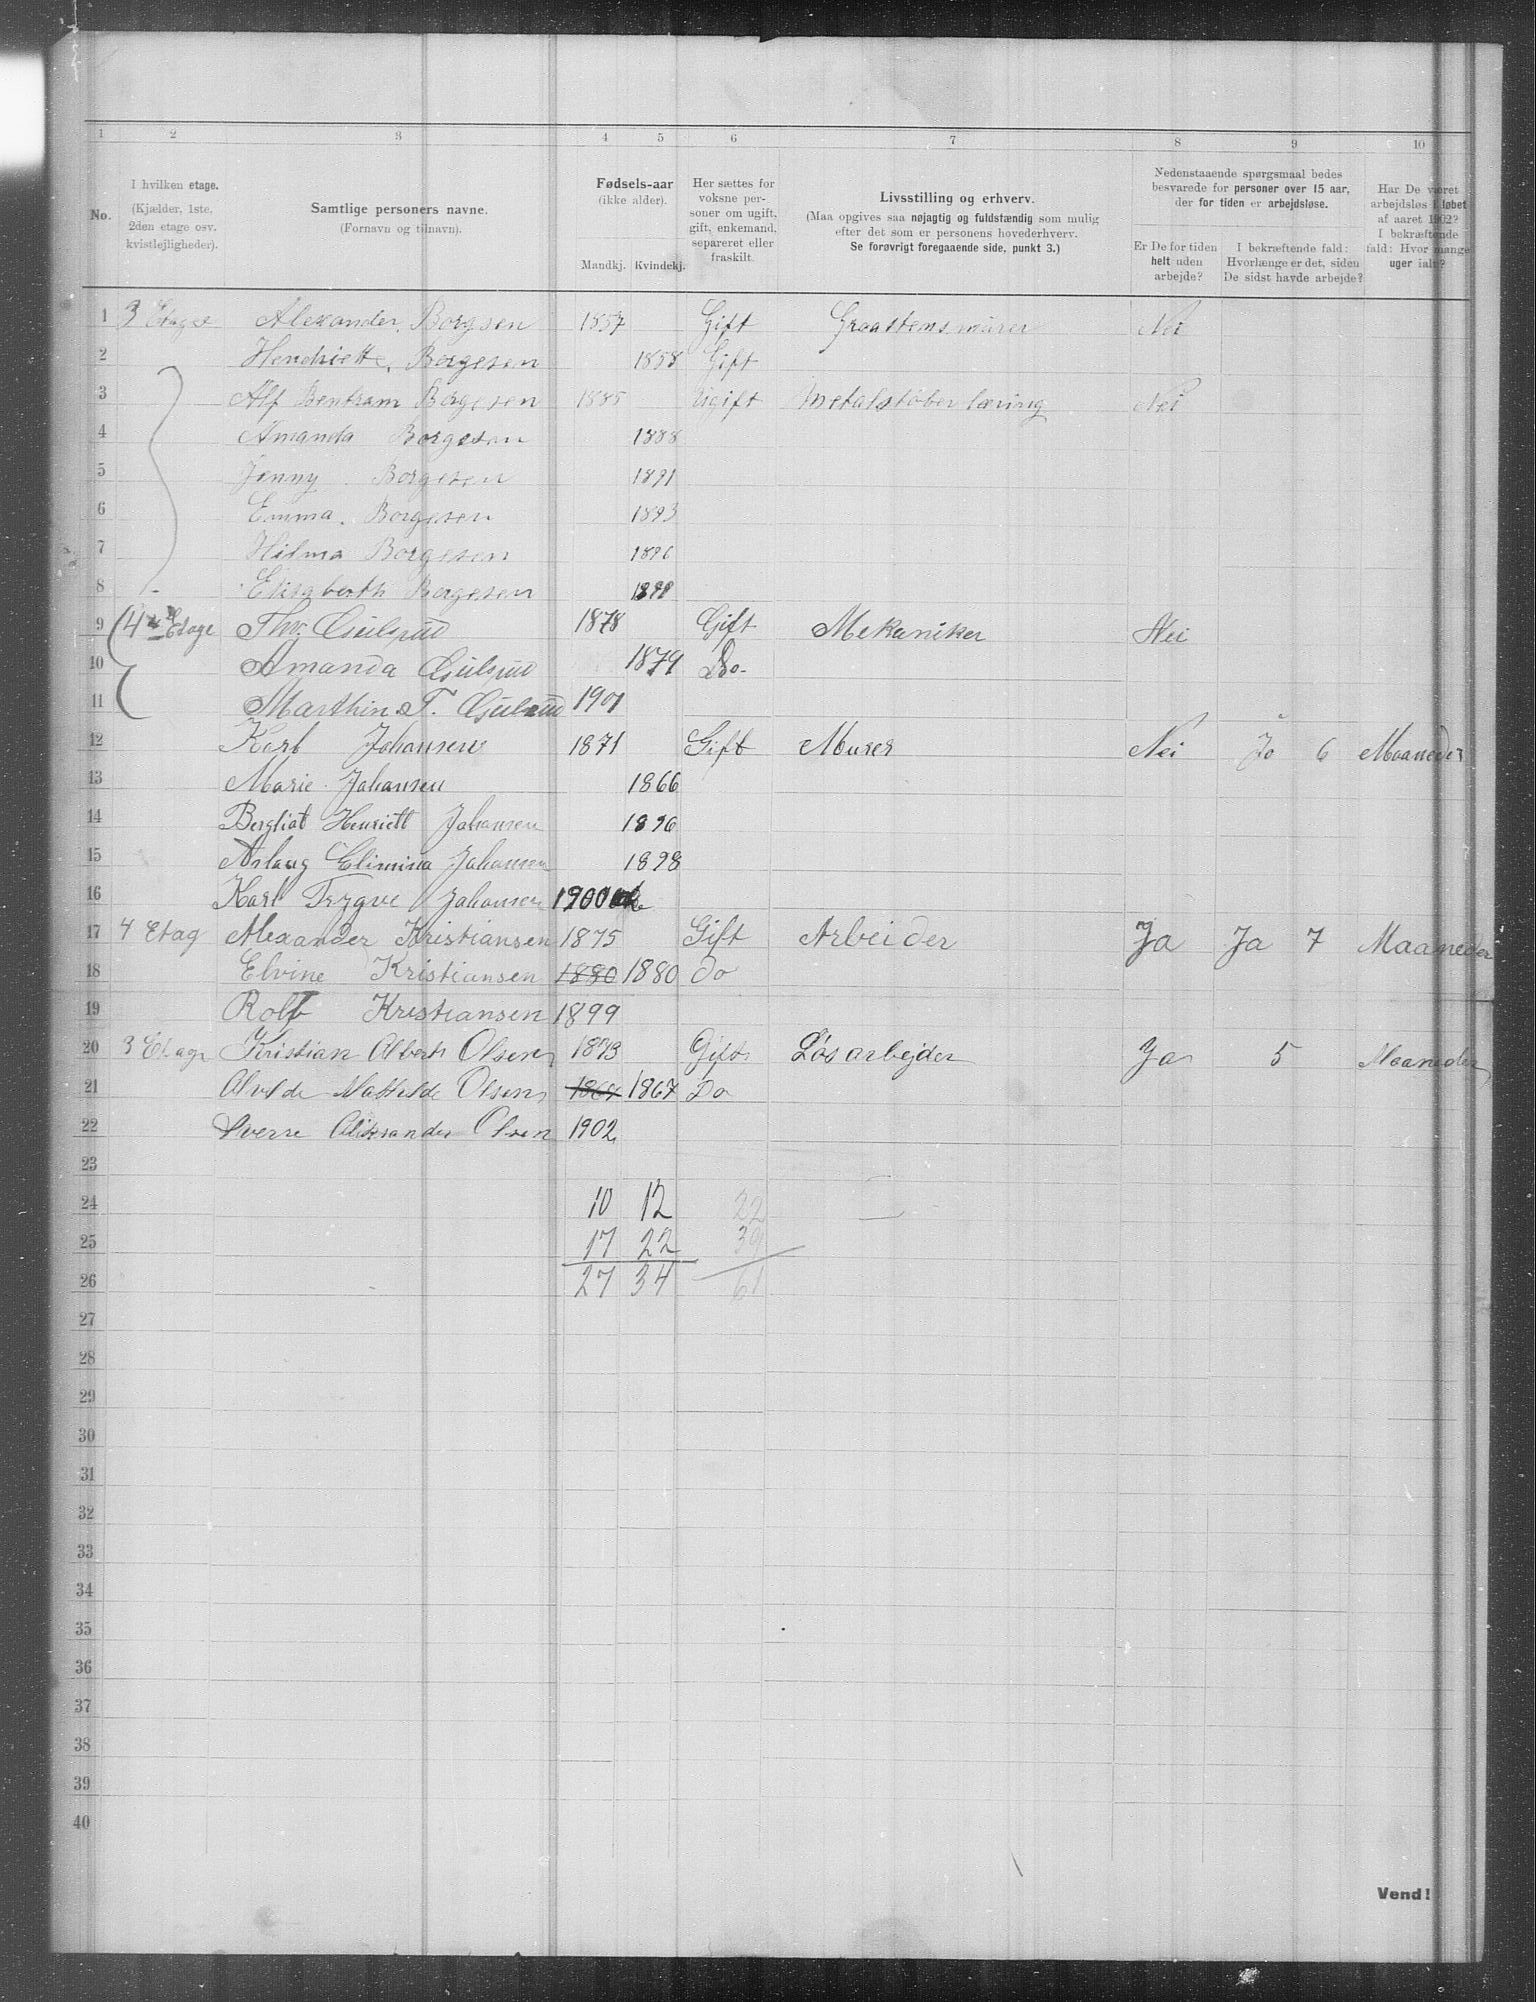 1 2 3 4 5 6 7 8 9 10
No.
I hvilken etage.
(Kjælder, 1ste,
2den etage osv.
kvistlejligheder).
Samtlige personers navne.
(Fornavn og tilnavn).
Fødsels-aar
(ikke alder).
Mandkj. Kvindekj.
Her sættes for
voksne per-
soner om ugift,
gift, enkemand,
separeret eller
fraskilt.
Livsstilling og erhverv.
(Maa opgives saa nøjagtig og fuldstændig som mulig
efter det som er personens hovederhverv.
Se forøvrigt foregaaende side, punkt 3.)
Nedenstaaende spørgsmaal bedes
besvarede for personer over 15 aar,
der for tiden er arbejdsløse.
Er De for tiden
helt uden
arbejde?
I bekræftende fald:
Hvorlænge er det, siden
De sidst havde arbejde?
Har De været
arbejdsløs i løbet
af aaret 1902?
I bekræftende
fald: Hvor mange
uger ialt?
1 3 Etage Alexander Borgsen 1857 Gift Graastensmurer Nei
2 Hendriette Borgesen 1858 Gift
3 Alf Bentram Borgesen 1885 Ugift Metalstøber læring Nei
4 Amanda Borgesen 1888
5 Jenny Borgesen 1891
6 Emma Borgesen 1893
7 Hilma Borgesen 1896
8 Elisaberth Borgesen
9 4 Etage Thv. Gulsrud 1878 Gift Mekaniker Nei
10 Amanda Gulsrud 1879 Do.
11 Marthin T. Gulsrud 1901
12 Karl Johansen 1871 Gift Murer Nei Jo 6 Maaneder
13 Marie Johansen 1866
14 Bergliot Henriett Johansen 1896
15 Aslaug Elimina Johansen 1898
16 Karl Trygve Johansen 1900
17 4 Etag Alexander Kristiansen 1875 Gift Arbeider Ja Ja 7 Maaneder
18 Elvine Kristiansen 1880 1880 Do
19 Rolf Kristiansen 1899
20 3 Etage Kristian Albert Olsen 1873 Gift Løsarbejder Ja 5 Maaneder
21 Alvilde Mathilde Olsen 1867 1867 Do
22 Sverre Aleksander Olsen 1902
23
24 10 12 22
25 17 22 39
26 27 34 61
27
28
29
30
31
32
33
34
35
36
37
38
39
40
Vend!